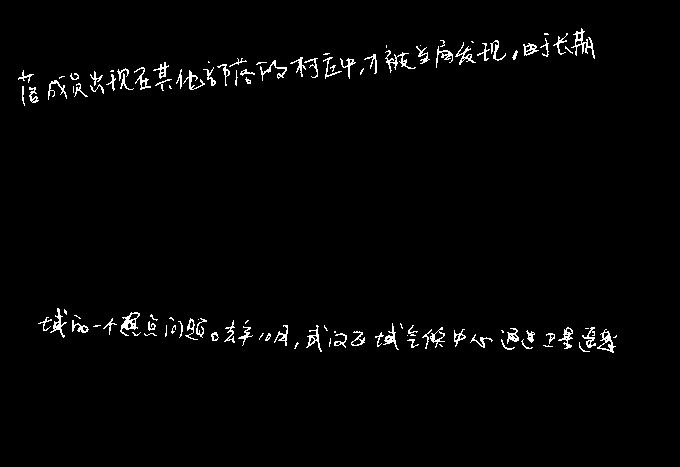 落成员出现在其他部落的村庄中,才被当局发现。由于长期
域的一个热点问题。去年10月,武汉区域气候中心通过卫星遥感